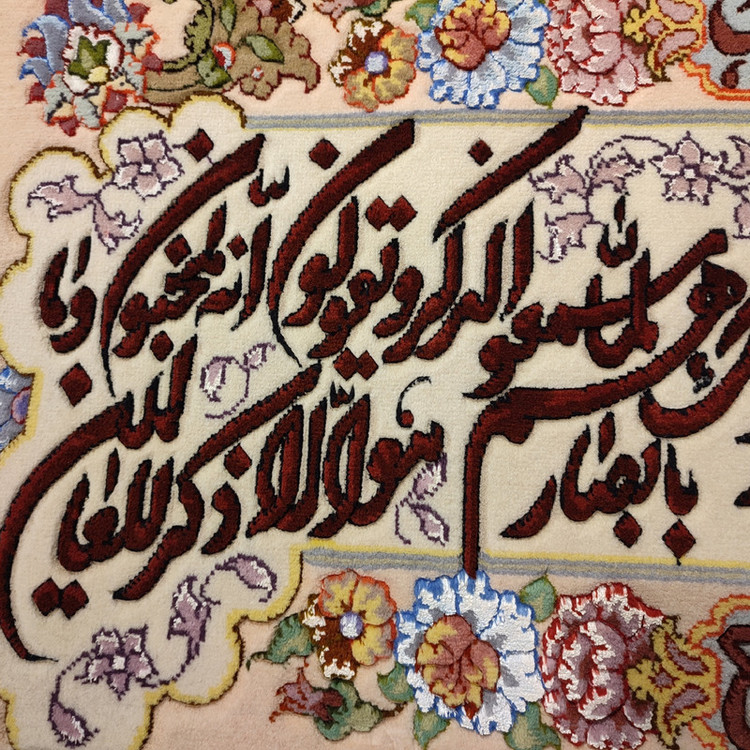 بابصارهم لمّا سمعوا الذکر و یقولون انّه لمجنون و ما
هو الّا ذکر للعالمین